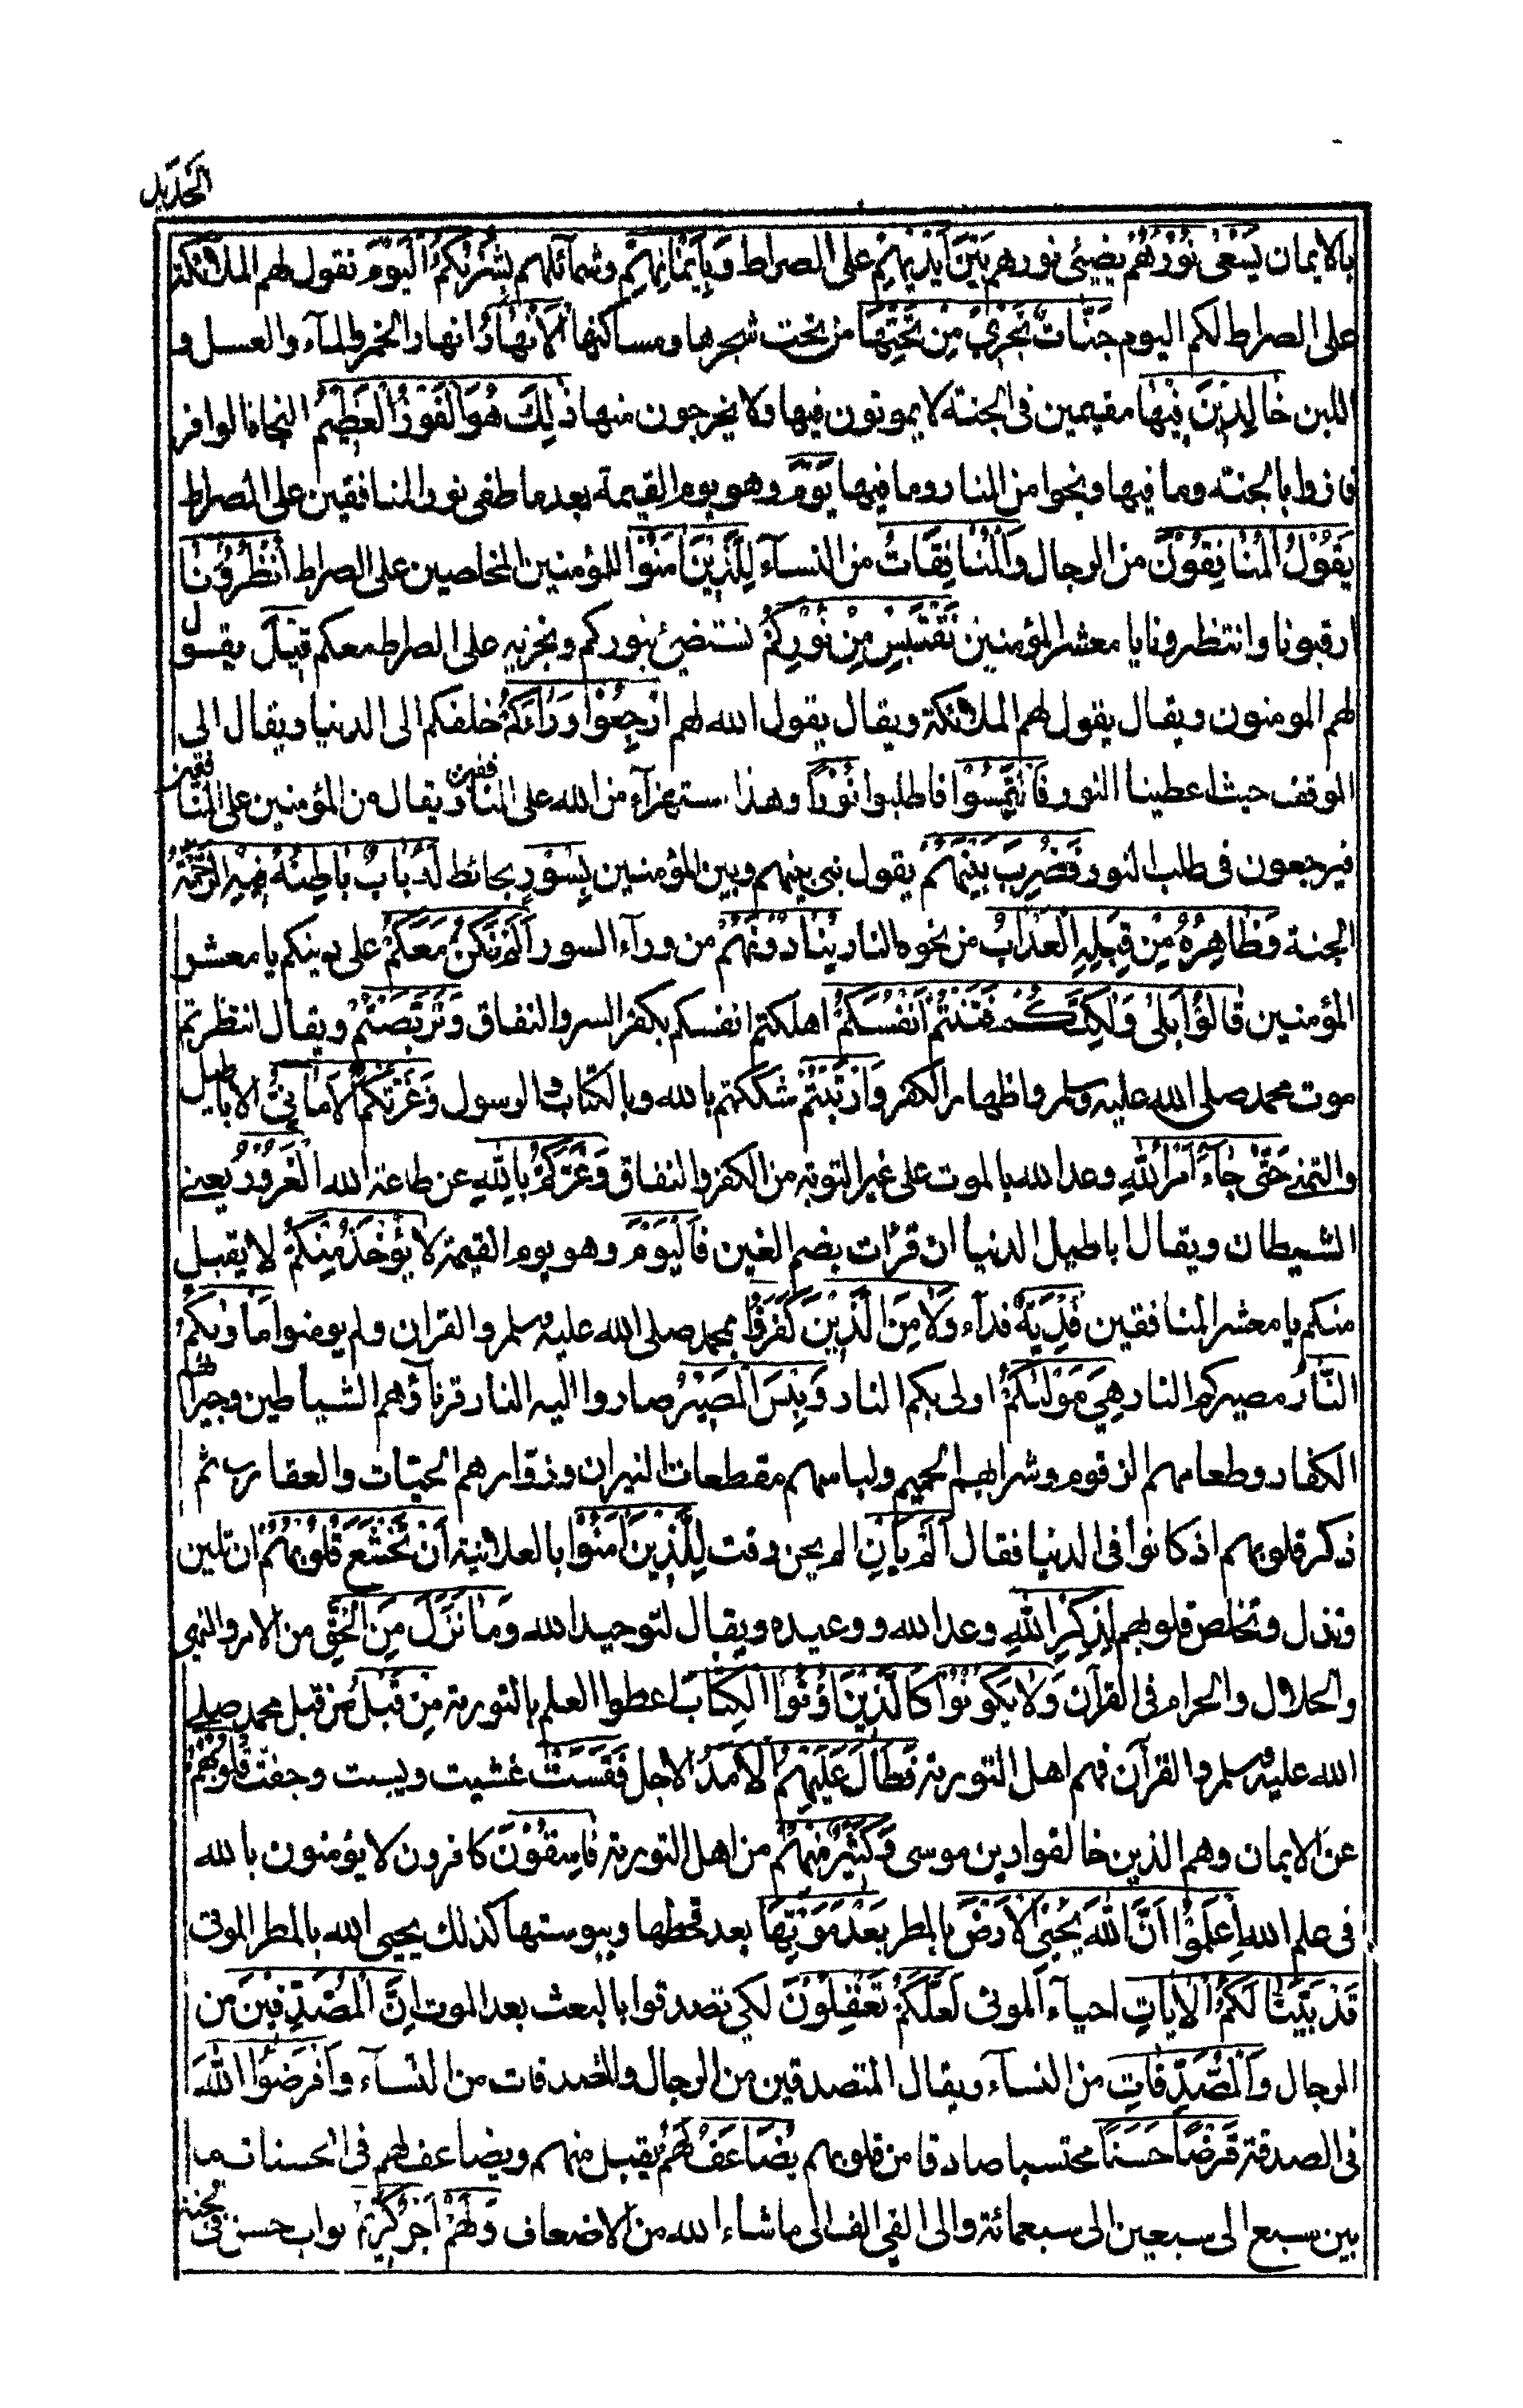 الحديد
بالايمان يَسْعٰى نُوْرُهُمْ يضيئ نورهم بَيْنَ اَيْدِيْهِمْ على الصراط وَبِاَيْمَانِهِمْ وشمائلهم بُشْرٰىكُمُ الْيَوْمَ تقول لهم الملائكة
على الصراط لكم اليوم جَنّٰتٌ تَجْرِيْ مِنْ تَحْتِهَا من تحت شجرها ومساكنها الْاَنْهَارُ انهار الخمر والماء والعسل و
اللبن خَالِدِيْنَ فِيْهَا مقيمين فى الجنة لا يموتون فيها ولا يخرجون منها ذٰلِكَ هُوَ الْفَوْزُ الْعَظِيْمُ النجاة الوافر
فازوا بالجنة وما فيها ونجوا من النار وما فيها يَوْمَ وهو يوم القيمة بعد ما طفى نور المنافقين على الصراط
يَقُوْلُ الْمُنَافِقُوْنَ من الرجال وَالْمُنَافِقَاتُ من النساء لِلَّذِيْنَ اٰمَنُوْا للمؤمنين المخلصين على الصراط انْظُرُوْنَا
ارقبونا وانتظرونا يا معشر المؤمنين نَقْتَبِسْ مِنْ نُوْرِكُمْ نستضئ بنوركم ونجز به على الصراط معكم قِيْلَ يقول
لهم المومنون ويقال يقول لهم الملائكة ويقال يقول الله لهم ارْجِعُوْا وَرَاءَكُمْ خلفكم الى الدنيا ويقال الى
الموقف حيث اعطينا النور فَالْتَمِسُوْا فاطلبوا نُوْرًا وهذا استهزاء من الله على المنافقين ويقال من المؤمنين على المنافقين
فيرجعون فى طلب النور فَضُرِبَ بَيْنَهُمْ يقول بنى بينهم وبين المؤمنين بِسُوْرٍ بحائط لَهُ بَابٌ بَاطِنُهُ فِيْهِ الرَّحْمَةُ
الجنة وَظَاهِرُهُ مِنْ قِبَلِهِ الْعَذَابُ من نحوه النار يُنَادُوْنَهُمْ من وراء السور اَلَمْ نَكُنْ مَعَكُمْ على دينكم يا معشر
المؤمنين قَالُوْا بَلٰى وَلٰكِنَّكُمْ فَتَنْتُمْ اَنْفُسَكُمْ اهلكتم انفسكم بكفر السر والنفاق وَتَرَبَّصْتُمْ ويقال انتظرتم
موت محمد صلى الله عليه وسلم واظهار الكفر وَارْتَبْتُمْ شككتم بالله وبالكتاب والرسول وَغَرَّتْكُمُ الْاَمَانِيُّ الاباطيل
والتمنى حَتّٰى جَاءَ اَمْرُ اللّٰهِ وعد الله بالموت على غير التوبة من الكفر والنفاق وَغَرَّكُمْ بِاللّٰهِ عن طاعة الله الْغَرُوْرُ يعنى
الشيطان ويقال اباطيل الدنيا ان قرأت بضم الغين فَالْيَوْمَ وهو يوم القيمة لَا يُؤْخَذُ مِنْكُمْ لا يقبل
منكم يا معشر المنافقين فِدْيَةٌ فداء وَلَا مِنَ الَّذِيْنَ كَفَرُوْا بمحمد صلى الله عليه وسلم والقران ولم يومنوا مَاْوٰىكُمُ
النَّارُ مصيركم النار هِيَ مَوْلٰىكُمْ اولى بكم النار وَبِئْسَ الْمَصِيْرُ صاروا اليه النار قرناؤهم الشياطين وجيرانهم
الكفار وطعامهم الزقوم وشرابهم الحميم ولباسهم مقطعات النيران وزوارهم الحيّات والعقارب ثم
ذكر قلوبهم اذ كانوا فى الدنيا فقال اَلَمْ يَاْنِ الم يحن وقت لِلَّذِيْنَ اٰمَنُوْا بالعلانية اَنْ تَخْشَعَ قُلُوْبُهُمْ ان تلين
وتذل وتخلص قلوبهم لِذِكْرِ اللّٰهِ وعد الله ووعيده ويقال لتوحيد الله وَمَا نَزَلَ مِنَ الْحَقِّ من الامر والنهى
والحلال والحرام فى القرآن وَلَا يَكُوْنُوْا كَالَّذِيْنَ اُوْتُوا الْكِتَابَ اعطوا العلم بالتورىة مِنْ قَبْلُ من قبل محمد صلى
الله عليه وسلم والقرآن فهم اهل التورىة فَطَالَ عَلَيْهِمُ الْاَمَدُ الاجل فَقَسَتْ غشيت ويبست وجفت قُلُوْبُهُمْ
عن الايمان وهم الذين خالفوا دين موسى وَكَثِيْرٌ مِنْهُمْ من اهل التورىة فَاسِقُوْنَ كافرون لا يؤمنون بالله
فى علم الله اِعْلَمُوْا اَنَّ اللّٰهَ يُحْيِى الْاَرْضَ بالمطر بَعْدَ مَوْتِهَا بعد قحطها ويبوستها كذلك يحيى الله بالمطر الموتى
قَدْ بَيَّنَّا لَكُمُ الْاٰيَاتِ احياء الموتى لَعَلَّكُمْ تَعْقِلُوْنَ لكى تصدقوا بالبعث بعد الموت اِنَّ الْمُصَّدِّقِيْنَ من
الرجال وَالْمُصَّدِّقَاتِ من النساء ويقال المتصدقين من الرجال والمتصدقات من النساء وَاَقْرَضُوا اللّٰهَ
فى الصدقة قَرْضًا حَسَنًا محتسبا صادقا من قلوبهم يُضَاعَفُ لَهُمْ يقبل منهم ويضاعف لهم فى الحسنات ما
بين سبع الى سبعين الى سبعمائة والى الفى الف الى ما شاء الله من الاضعاف وَلَهُمْ اَجْرٌ كَرِيْمٌ ثواب حسن فى الجنة